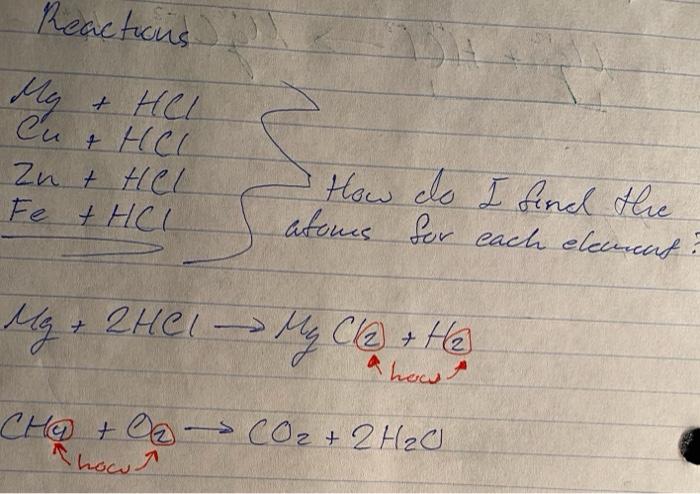 Reactions
Mg + HCl
Cu + HCl
Zn + HCl
Fe + HCl
How do I find the
atoms for each element?
Mg + 2HCl → MgCl2 + H2
how
CH4 + O2 → CO2 + 2H2O
how